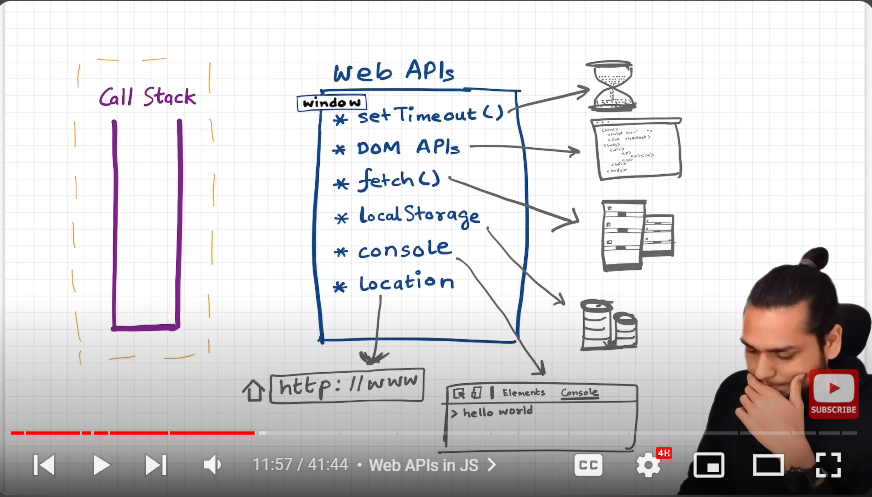 Call Stack
Web APIs
window
* setTimeout()
* DOM APIs
* fetch()
* localStorage
* console
* location
http://www
Elements Console
> hello world
SUBSCRIBE
11:57 / 41:44 • Web APIs in JS >
CC
4K